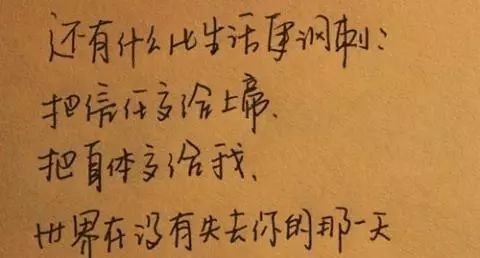 还有什么比生活更讽刺：
把信任交给上帝、
把身体交给我、
世界在没有失去你的那一天